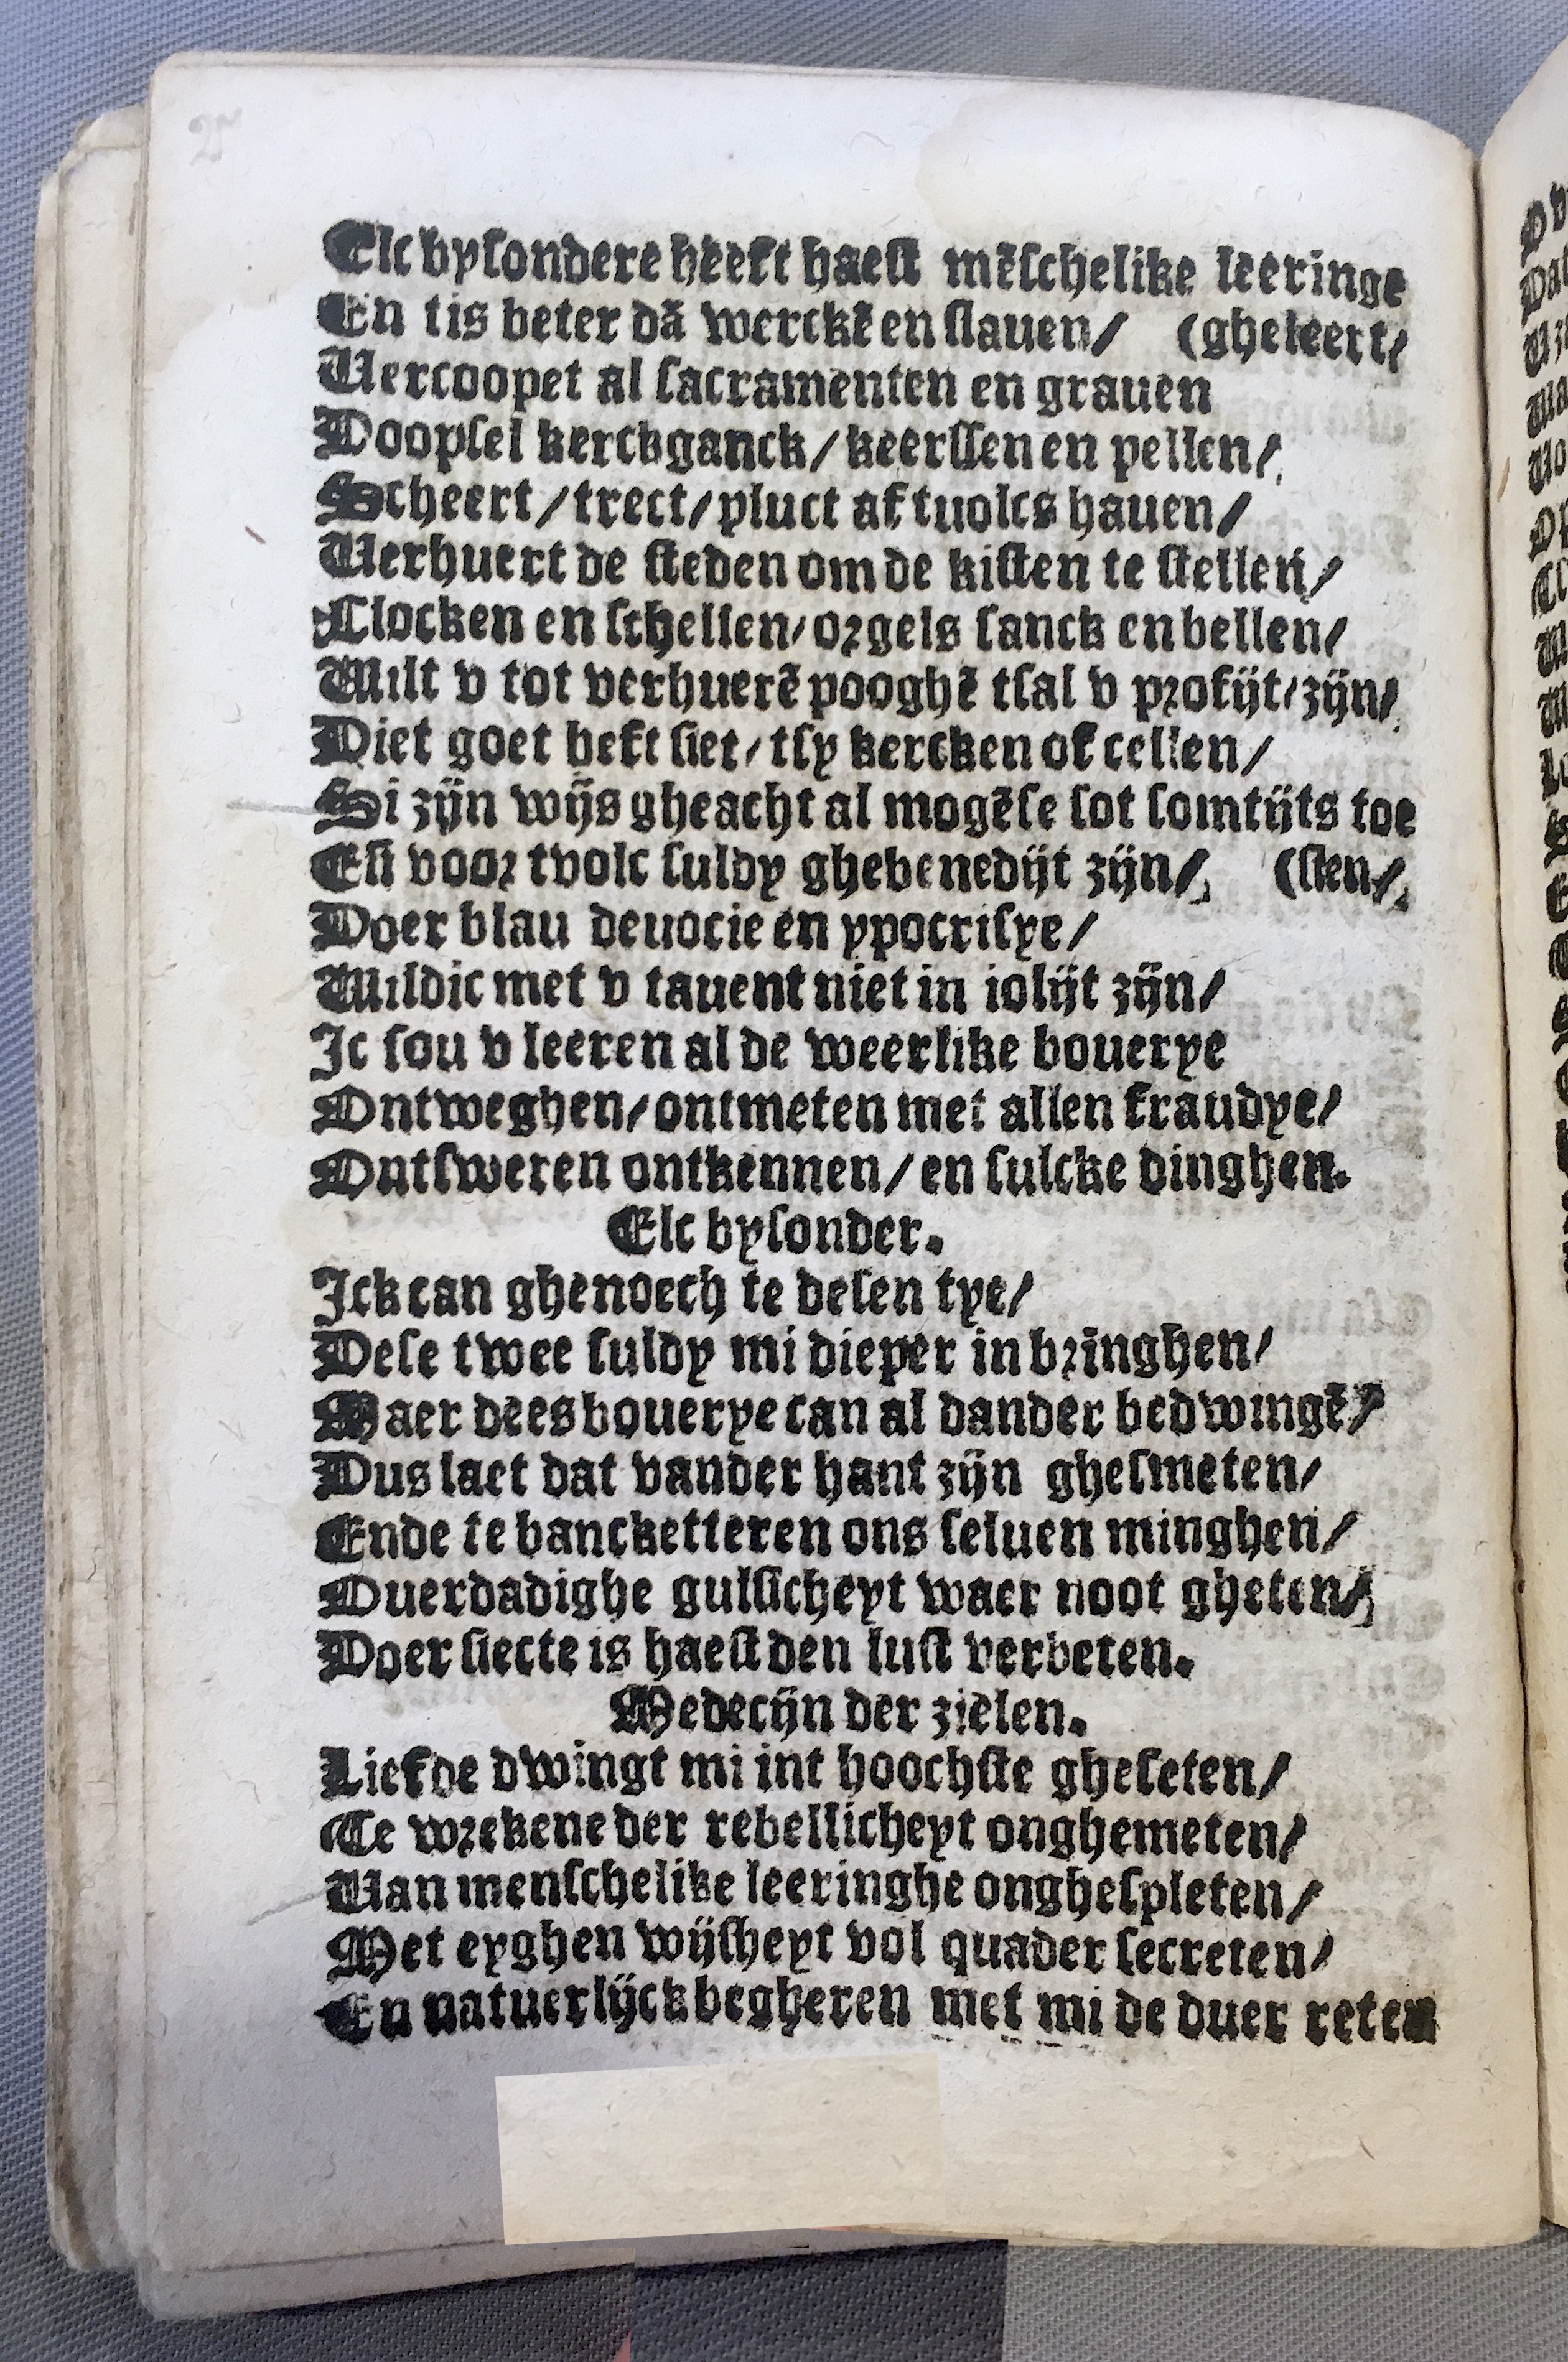 Elc bysondere heeft haest mẽschelike leeringe
En tis beter dã werckẽ en slauen/ (gheleert/
Vercoopet al sacramenten en grauen
Doopsel kerckganck/ keerssen en pellen/
Scheert/ trect/ pluct af tuolcs hauen/
Verhuert de steden om de kisten te stellen/
Clocken en schellen/ orgels sanck en bellen/
Wilt v tot verhuerẽ pooghẽ tsal v profijt/ zijn/
Diet goet heft siet/ tsy kercken of cellen/
Si zijn wijs gheacht al mogẽse sot somtijts toe
Esi voor tvolc suldy ghebenedijt zijn/ (sien/
Doer blau deuocie en ypocrisye/
Wildic met v tauent niet in iolijt zijn/
Ic sou v leeren al de weerlike bouerye
Ontweghen/ ontmeten met allen fraudye/
Ontsweren ontkennen/ en sulcke dinghen.
Elc bysonder.
Ick can ghenoech te desen tye/
Dese twee suldy mi dieper in bringhen/
Maer dees bouerye can al dander bedwingẽ/
Dus laet dat vander hant zijn ghesmeten/
Ende te bancketteren ons seluen minghen/
Ouerdadighe gulsicheyt waer noot gheten/
Doer siecte is haest den lust verbeten.
Medecijn der zielen.
Liefde dwingt mi int hoochste gheseten/
Te wrekene der rebellicheyt onghemeten/
Van menschelike leeringhe onghespleten/
Met eyghen wijsheyt vol quader secreten/
En natuerlijck begheren met mi de duer reten